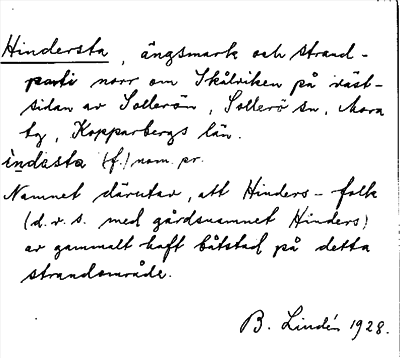 Hindersta, ängsmark och strand-
parti norr om Skålviken på väst-
sidan av Sollerön, Sollerö sn, Mora
tg, Kopparbergs län.
indasta (f.) nom. pr.
Namnet därutav, att Hinders-folk
(d.v.s. med gårdsnamnet Hinders)
av gammalt haft båtstad på detta
strandområde.
B. Lindén 1928.